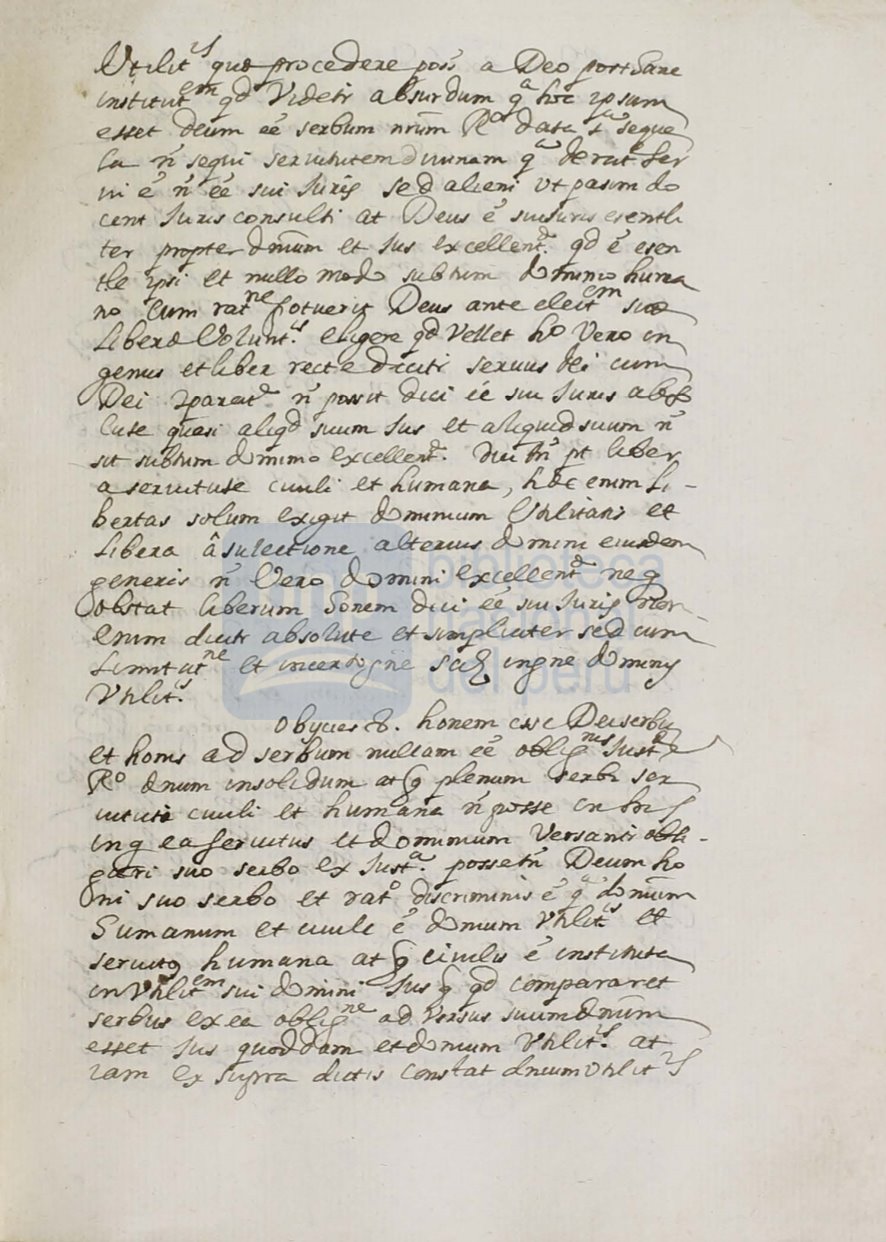 Utilit.is quæ procedere poss̃ a Deo
institut.em qd Videtr absurdum q.a hoc ipsum
esset deum eẽ serbum nrũm R.o data seque
la ñ sequi servitutem divinam q.a de rat.e Ser
vi ẽ ñ eẽ sui Juris sed alieni Vt pasim do
cent Juris consulti at Deus ẽ sui iuris esentli
ter propter dmũm et Jus excellent.æ qd ẽ esen
tle ipsi et nullo modo subtum dominio huma
no Cum rat.ne potuerit Deus ante eleit.em suæ
Liberæ Volunt.is eligere qd Vellet ho Vero in
genus et liber recte diciti servus Dei cum
Dei ñ possit dici eẽ sui Juris abso
lute quasi aliqd suum Jus et aliquid suum ñ
sit subtum dominio excellent.æ Dici tñ pt liber
a servitute civili et humana, hæc enim Li-
bertas solum exigit dominium Vtilitatis et
Libera â suiectione alterius domini eiusdem
generis ñ Vero domini excellent.æ neq
obstat liberum honem dici eẽ sui Juris non
enim dicitr absolute et simpliciter sed cum
Limitat.ne et in ordine domini
Vtilit.s
Obijcies 8. honem esse Dei serbũ
et homis ad serbum nullam eẽ oblig.nis Just.æ
R.o dnum insolidum atq plenum serbi ser
vitute civili et humana ñ posse in his
in q ea servitus et dominium Versantr obli-
gari suo serbo ex Just.a posse tñ Deum ho
ni suo serbo et rat.o discriminis ẽ q.a domium
Humanum et civile ẽ domium Vtilit.is et
servitus humana atq civilis ẽ instituta
in Vtilit.em sui domini Jus q qd compararet
serbus ex ea oblig.ne adversus suum dnũm
esset Jus quoddam et domium Vtilit.is at
iam ex supra dictis constat dnium Vtilit.is